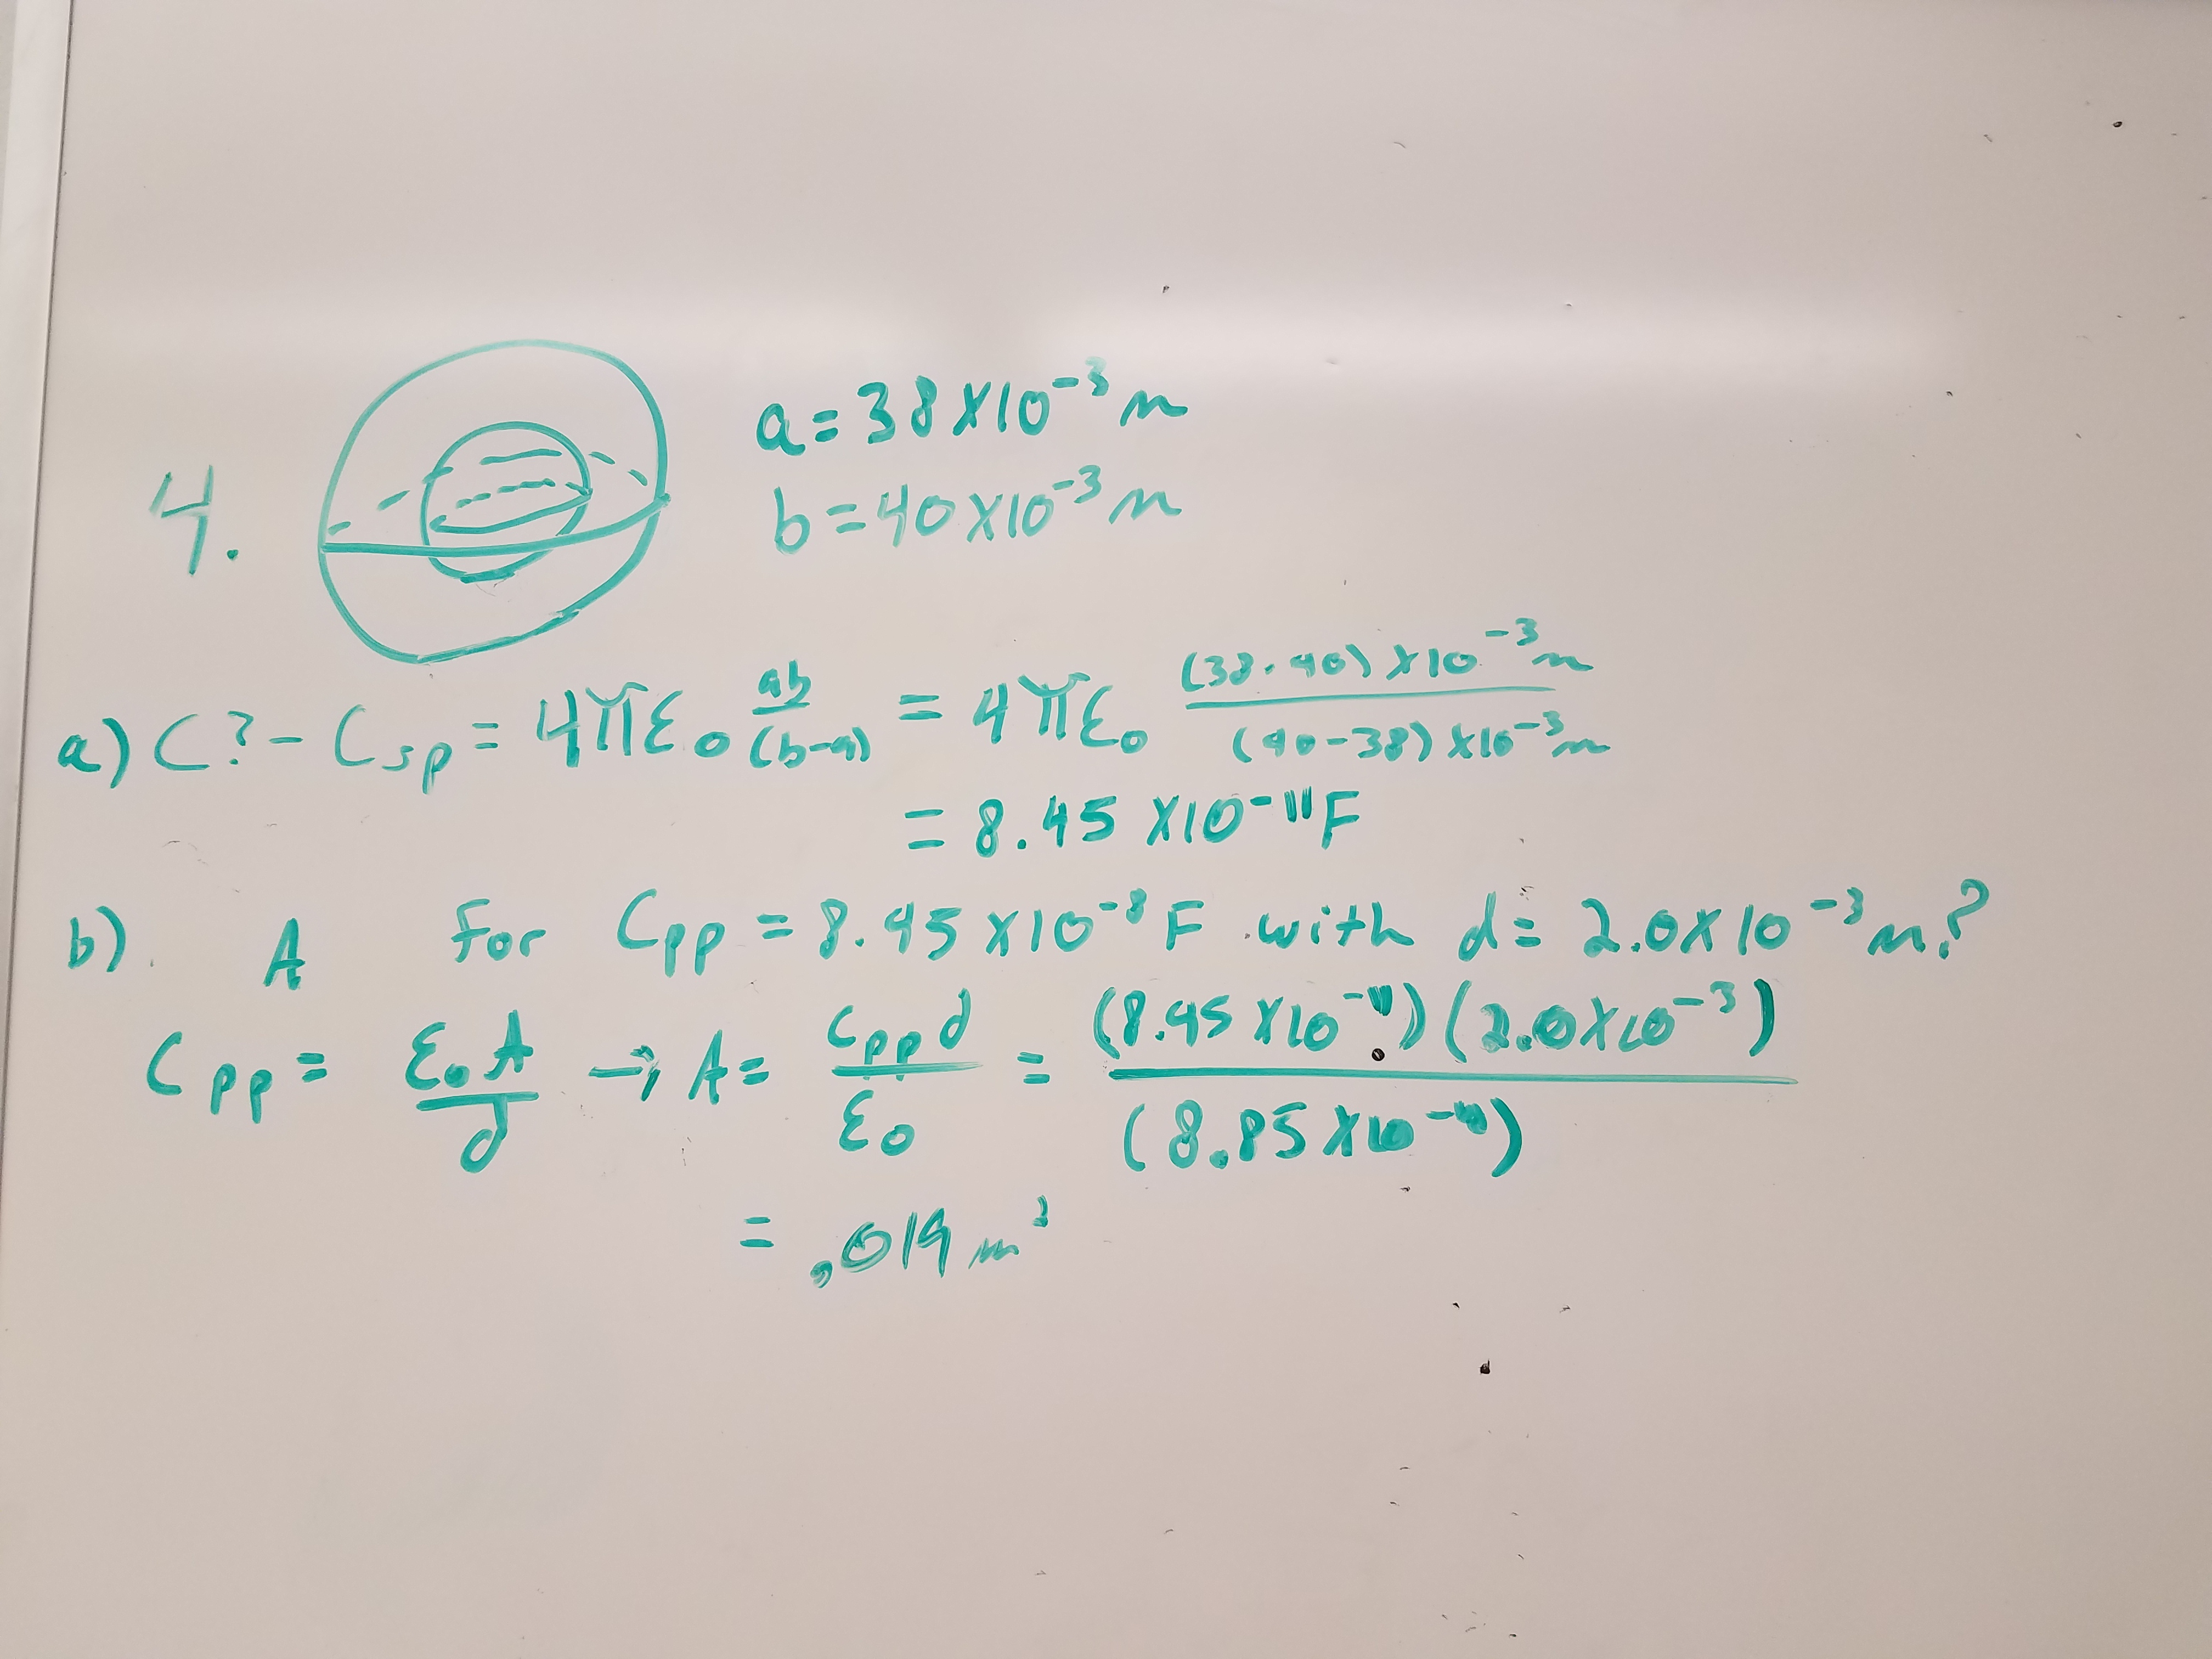 a = 38 X10⁻³ m
4.
b = 40 X10⁻³ m
a) C? - C_sp = 4πε₀ ab/(b-a) = 4πε₀ (38·40) X10⁻³ m / (40-38) X10⁻³ m
= 8.45 X10⁻¹¹ F
b). A For C_pp = 8.45 X10⁻⁸ F with d = 2.0X10⁻³ m?
C_pp = ε₀A/d → A = C_pp d/ε₀ = (8.45 X10⁻¹¹)(2.0X10⁻³) / (8.85 X10)
= .019 m²